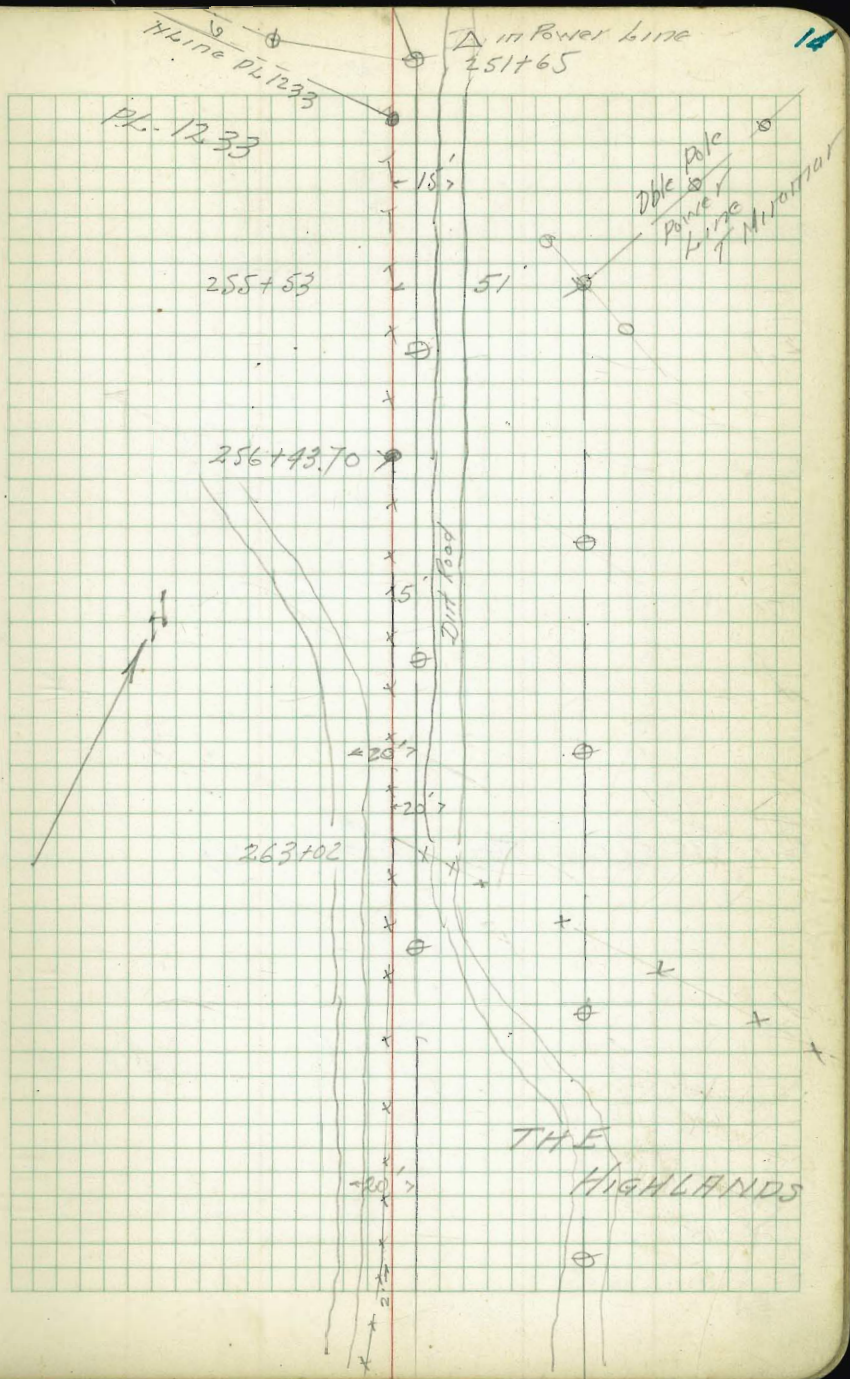 14
Δ in Power Line
251+65
PL 1233
PL-1233
Dble Pole
Power
Line
T Miramar
15'
255+53
51'
256+43.70
Dirt Road
5'
N
20'
20'
263+02
THE
HIGHLANDS
20'
2'